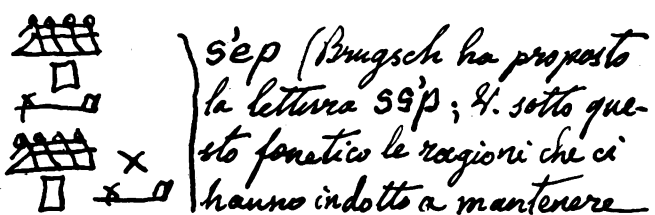 s'ep (Brugsch ha proposto
la lettura ss'p; V. sotto que-
sto fonetico le ragioni che ci
hanno indotto a mantenere